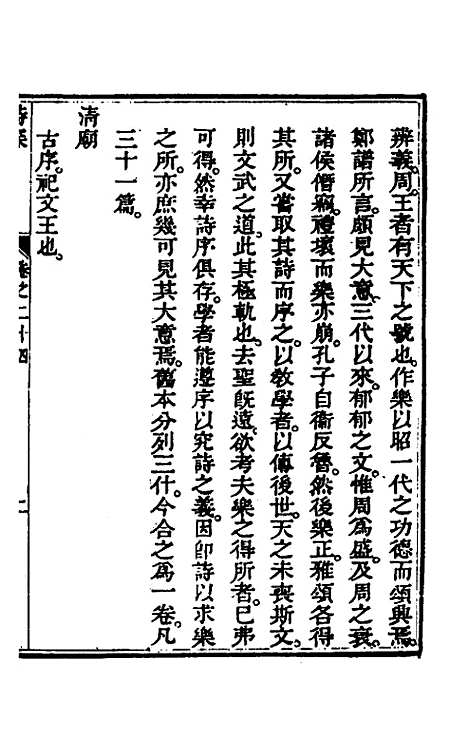 辨義。周。王者有天下之號也。作樂以昭一代之功德而頌興焉。
鄭譜所言。頗見大意。三代以來。郁郁之文。惟周爲盛。及周之衰。
諸侯僭竊。禮壞而樂亦崩。孔子自衞反魯。然後樂正。雅頌各得
其所。又嘗取其詩而序之。以教學者。以傳後世。天之未喪斯文。
則文武之道。此其極軌也。去聖旣遠。欲考夫樂之得所者。已弗
可得。然幸詩序俱存。學者能遵序以究詩之義。因卽詩以求樂
之所。亦庶幾可見其大意焉。舊本分列三什。今合之爲一卷。凡
三十一篇。
淸廟
古序。祀文王也。
卷之二十四